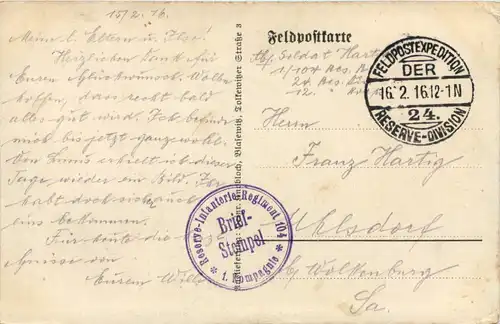 15/2. 16.
Meine l. Eltern u. Ilse!
Herzlichen Dank für
Euren Glückwunsch. Wollen
hoffen, dass recht bald
alles gut wird. Ich befinde
mich bis jetzt ganz wohl.
Von erhielt ich dieser
Tage wieder ein Bild. Ihr
habt doch sicher auch
eins bekommen.
Für heute die
Grüsse von
Eurem Willy
Blasewitz, Tolkewitzer Straße 3
Feldpostkarte
Abs. Soldat Hartig
1/104 Res.
24. Res.
12.
FELDPOSTEXPEDITION
DER
16. 2. 16. 12-1 N
24.
RESERVE-DIVISION
Herrn
Franz Hartig
Reserve-Infanterie-Regiment 104
Brief-
Stempel
* 1. Kompagnie *
Uhlsdorf
b/ Wolkenburg
Sa.